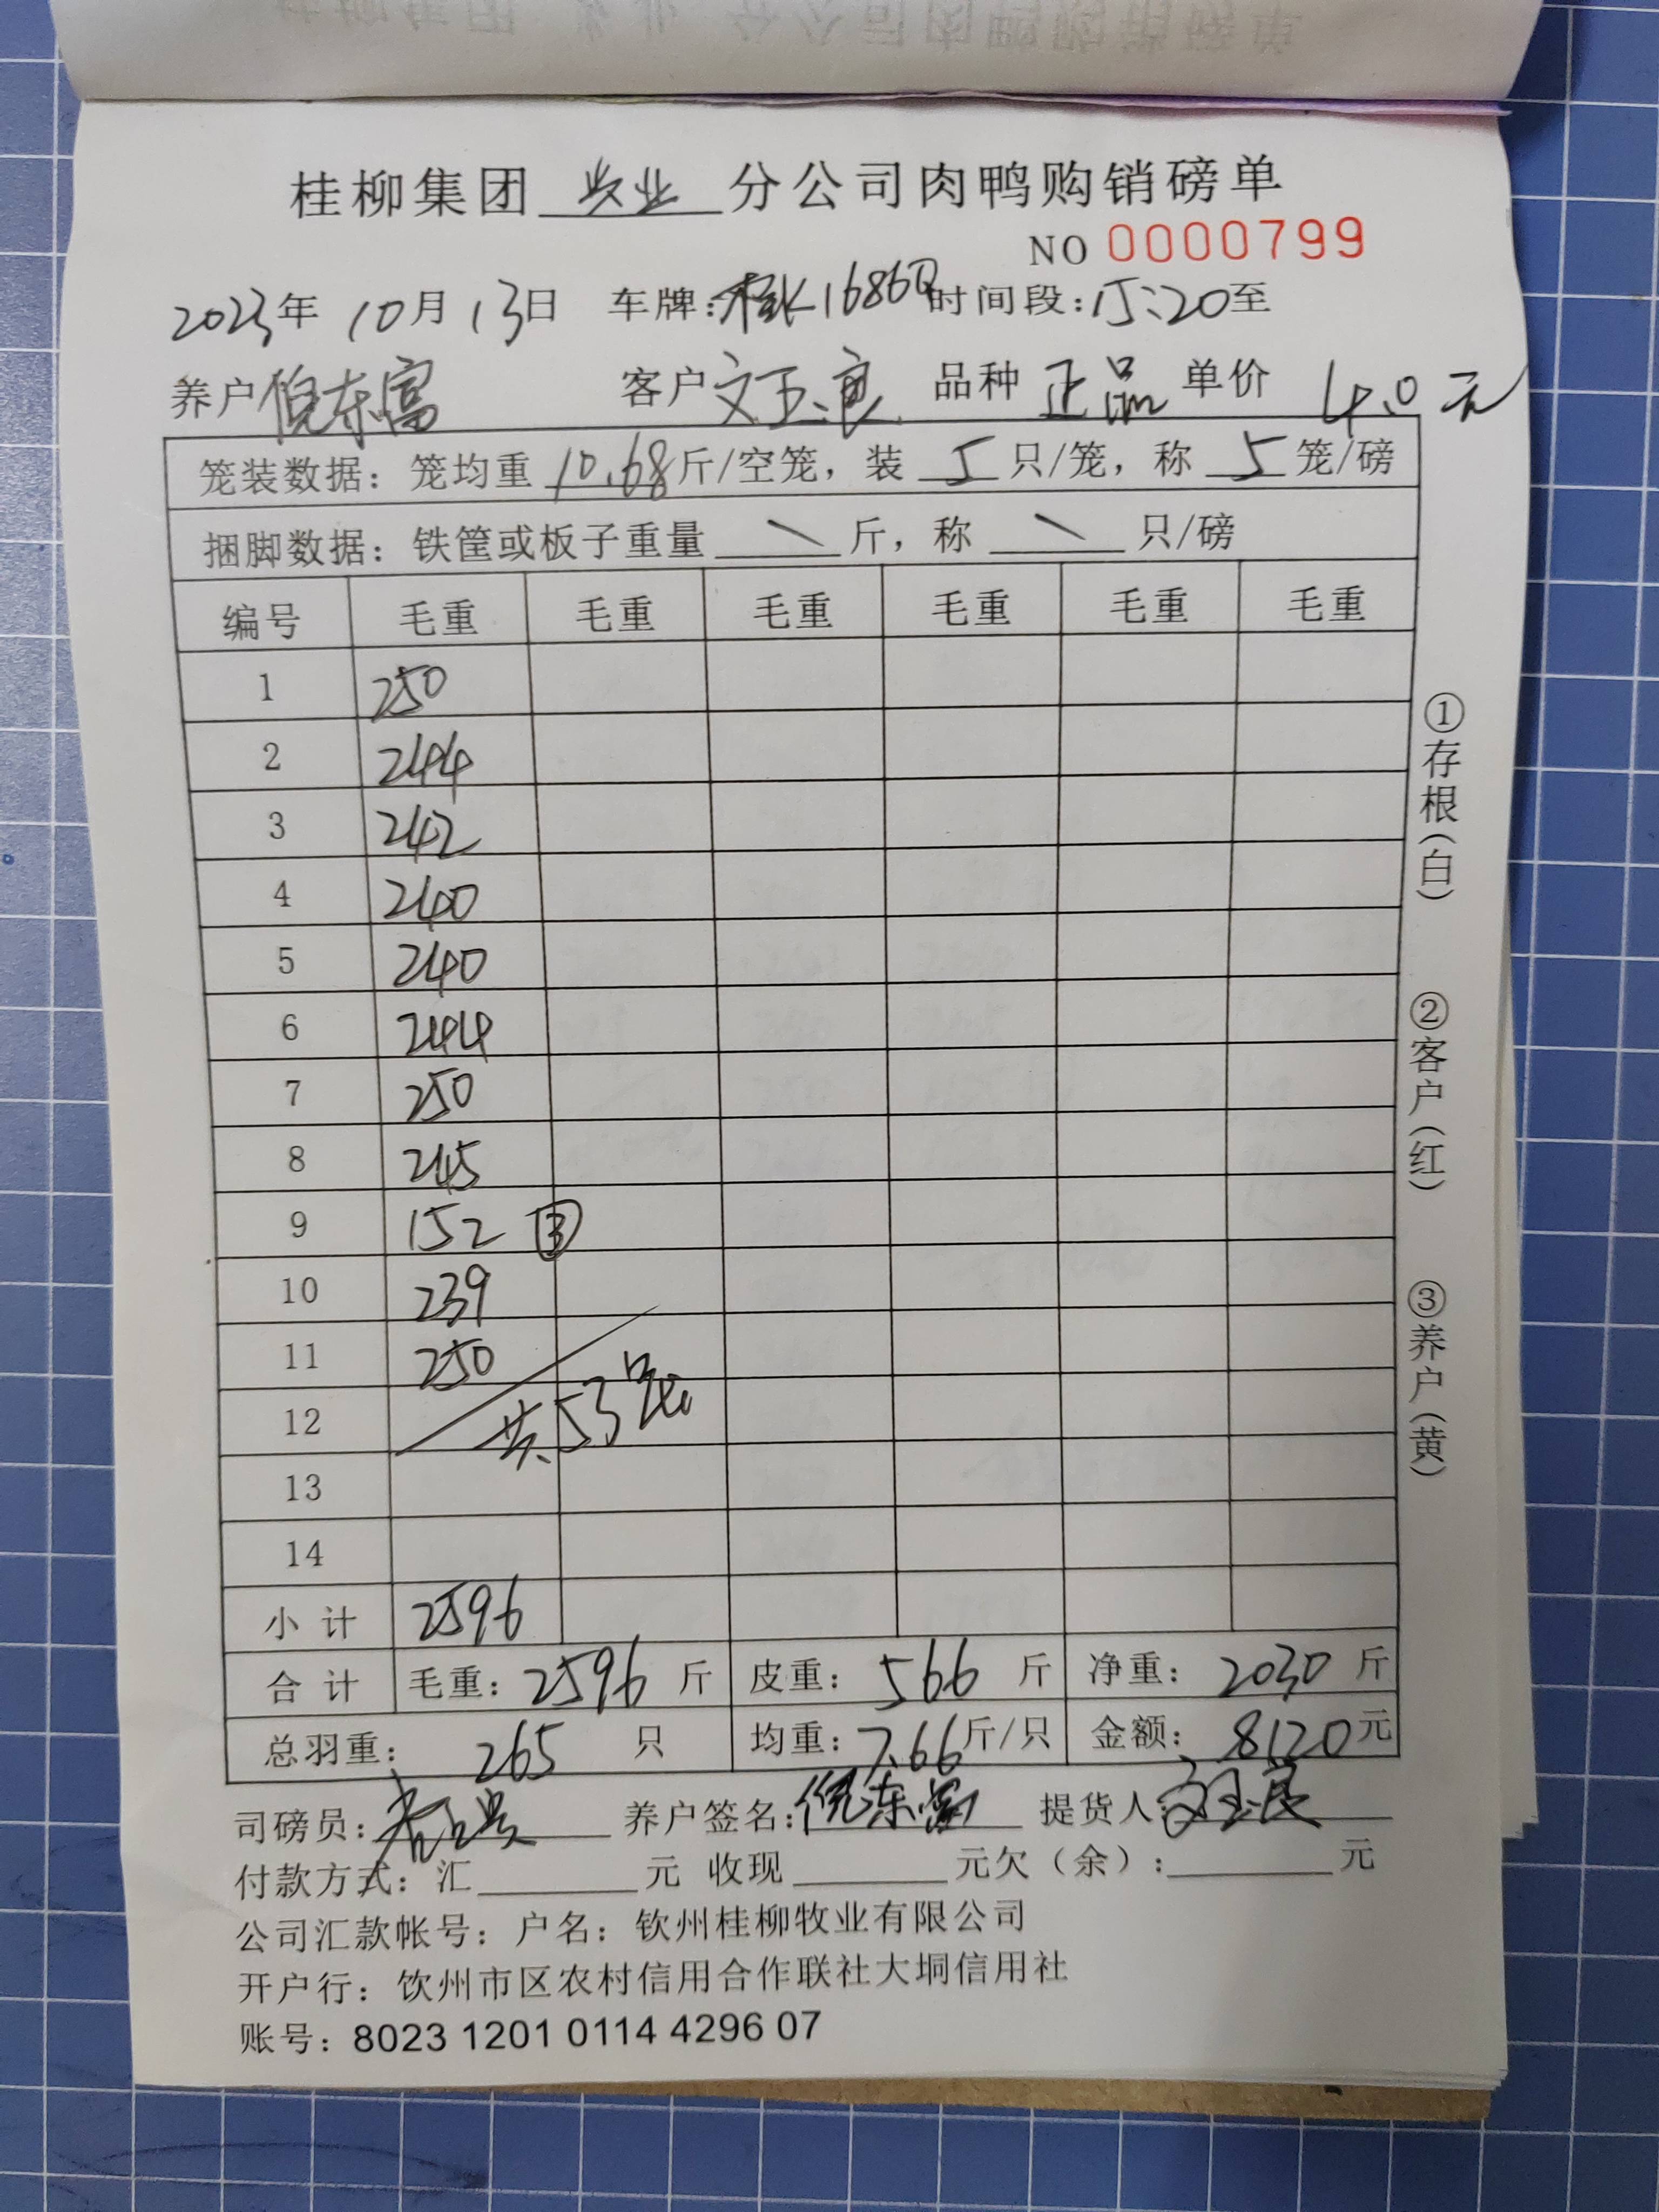 桂柳集团 牧业 分公司肉鸭购销磅单
NO 0000799
2023年 10月 13日 车牌:桂K1686Q 时间段:15:20至
养户 倪东富 客户 文玉良 品种 正品 单价 4.0元
笼装数据: 笼均重 10.68斤/空笼, 装 5 只/笼, 称 5 笼/磅
捆脚数据: 铁筐或板子重量 \ 斤, 称 \ 只/磅
编号 毛重 毛重 毛重 毛重 毛重 毛重
1 250
2 244
3 242
4 240
5 240
6 244
7 250
8 245
9 152 ③
10 239
11 250
12 共53笼
13
14
小计 2596
合计 毛重: 2596 斤 皮重: 566 斤 净重: 2030 斤
总羽重: 265 只 均重: 7.66斤/只 金额: 8120元
司磅员: 养户签名: 倪东富 提货人: 文玉良
付款方式: 汇 元 收现 元欠(余): 元
公司汇款帐号: 户名: 钦州桂柳牧业有限公司
开户行: 钦州市区农村信用合作联社大垌信用社
账号: 8023 1201 0114 4296 07
①存根(白)
②客户(红)
③养户(黄)